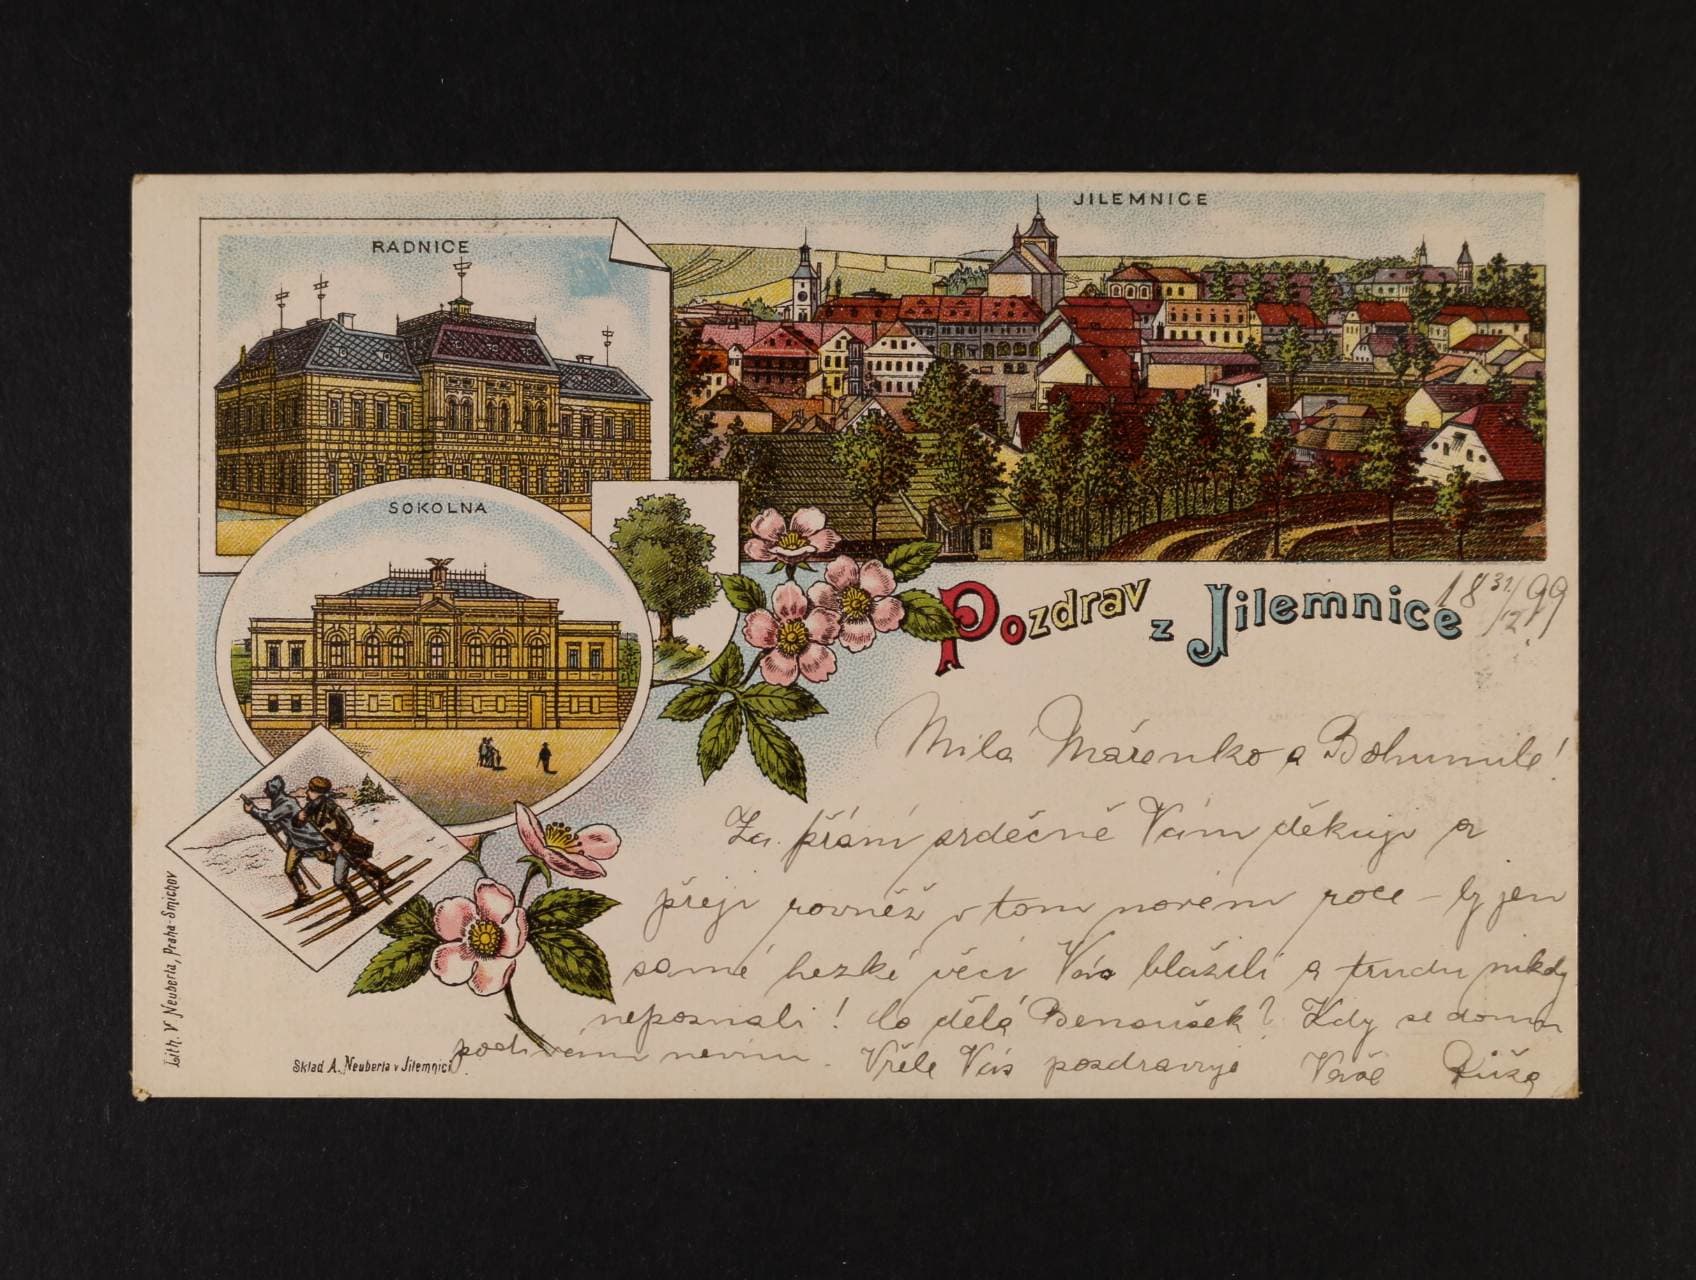 JILEMNICE
RADNICE
SOKOLNA
Pozdrav z Jilemnice
18 31/ 99
Milá Mářenko a Bohumile!
Za přání srdečně Vám děkuji a
přeji rovněž v tom novém roce – by jen
samé hezké věci Vás blažili a trudu nikdy
nepoznali! Co dělá Benoušek? Kdy se domů
podívám nevím. Vřele Vás pozdravuje Vaše Růža
Sklad A. Neuberta v Jilemnici
Lith. V. Neuberta, Praha-Smíchov